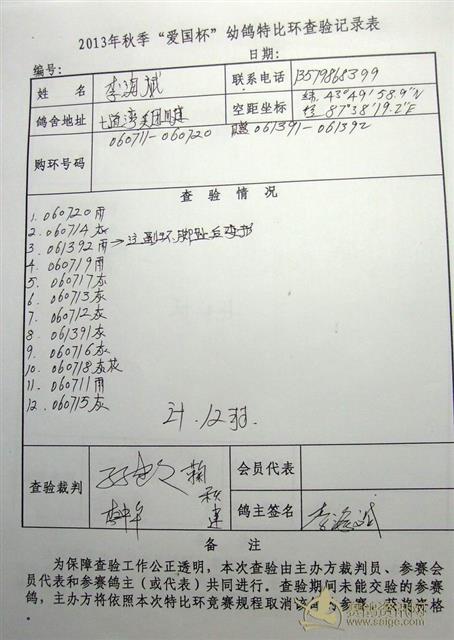 2013年秋季“爱国杯”幼鸽特比环查验记录表
编号： 日期：
姓 名 李 斌 联系电话 13579868399
鸽舍地址 七道湾 空距坐标 纬 43°49′58.9″N
经 87°38′19.2″E
购环号码 060711-060720 赠 061391-061392
查 验 情 况
1. 060720 雨
2. 060714 灰
3. 061392 雨 → 注 副环 脚趾后变形
4. 060719 雨
5. 060717 灰
6. 060713 灰
7. 060712 灰
8. 061391 灰
9. 060716 灰
10. 060718 灰花
11. 060711 雨
12. 060715 灰
计. 12羽.
查验裁判 鞠秋建 会员代表
鸽主签名 李 斌
备 注
为保障查验工作公正透明，本次查验由主办方裁判员、参赛会
员代表和参赛鸽主（或代表）共同进行。查验期间未能交验的参赛
鸽，主办方将依照本次特比环竞赛规程取消该羽的参赛、获奖资格
www.saige.com